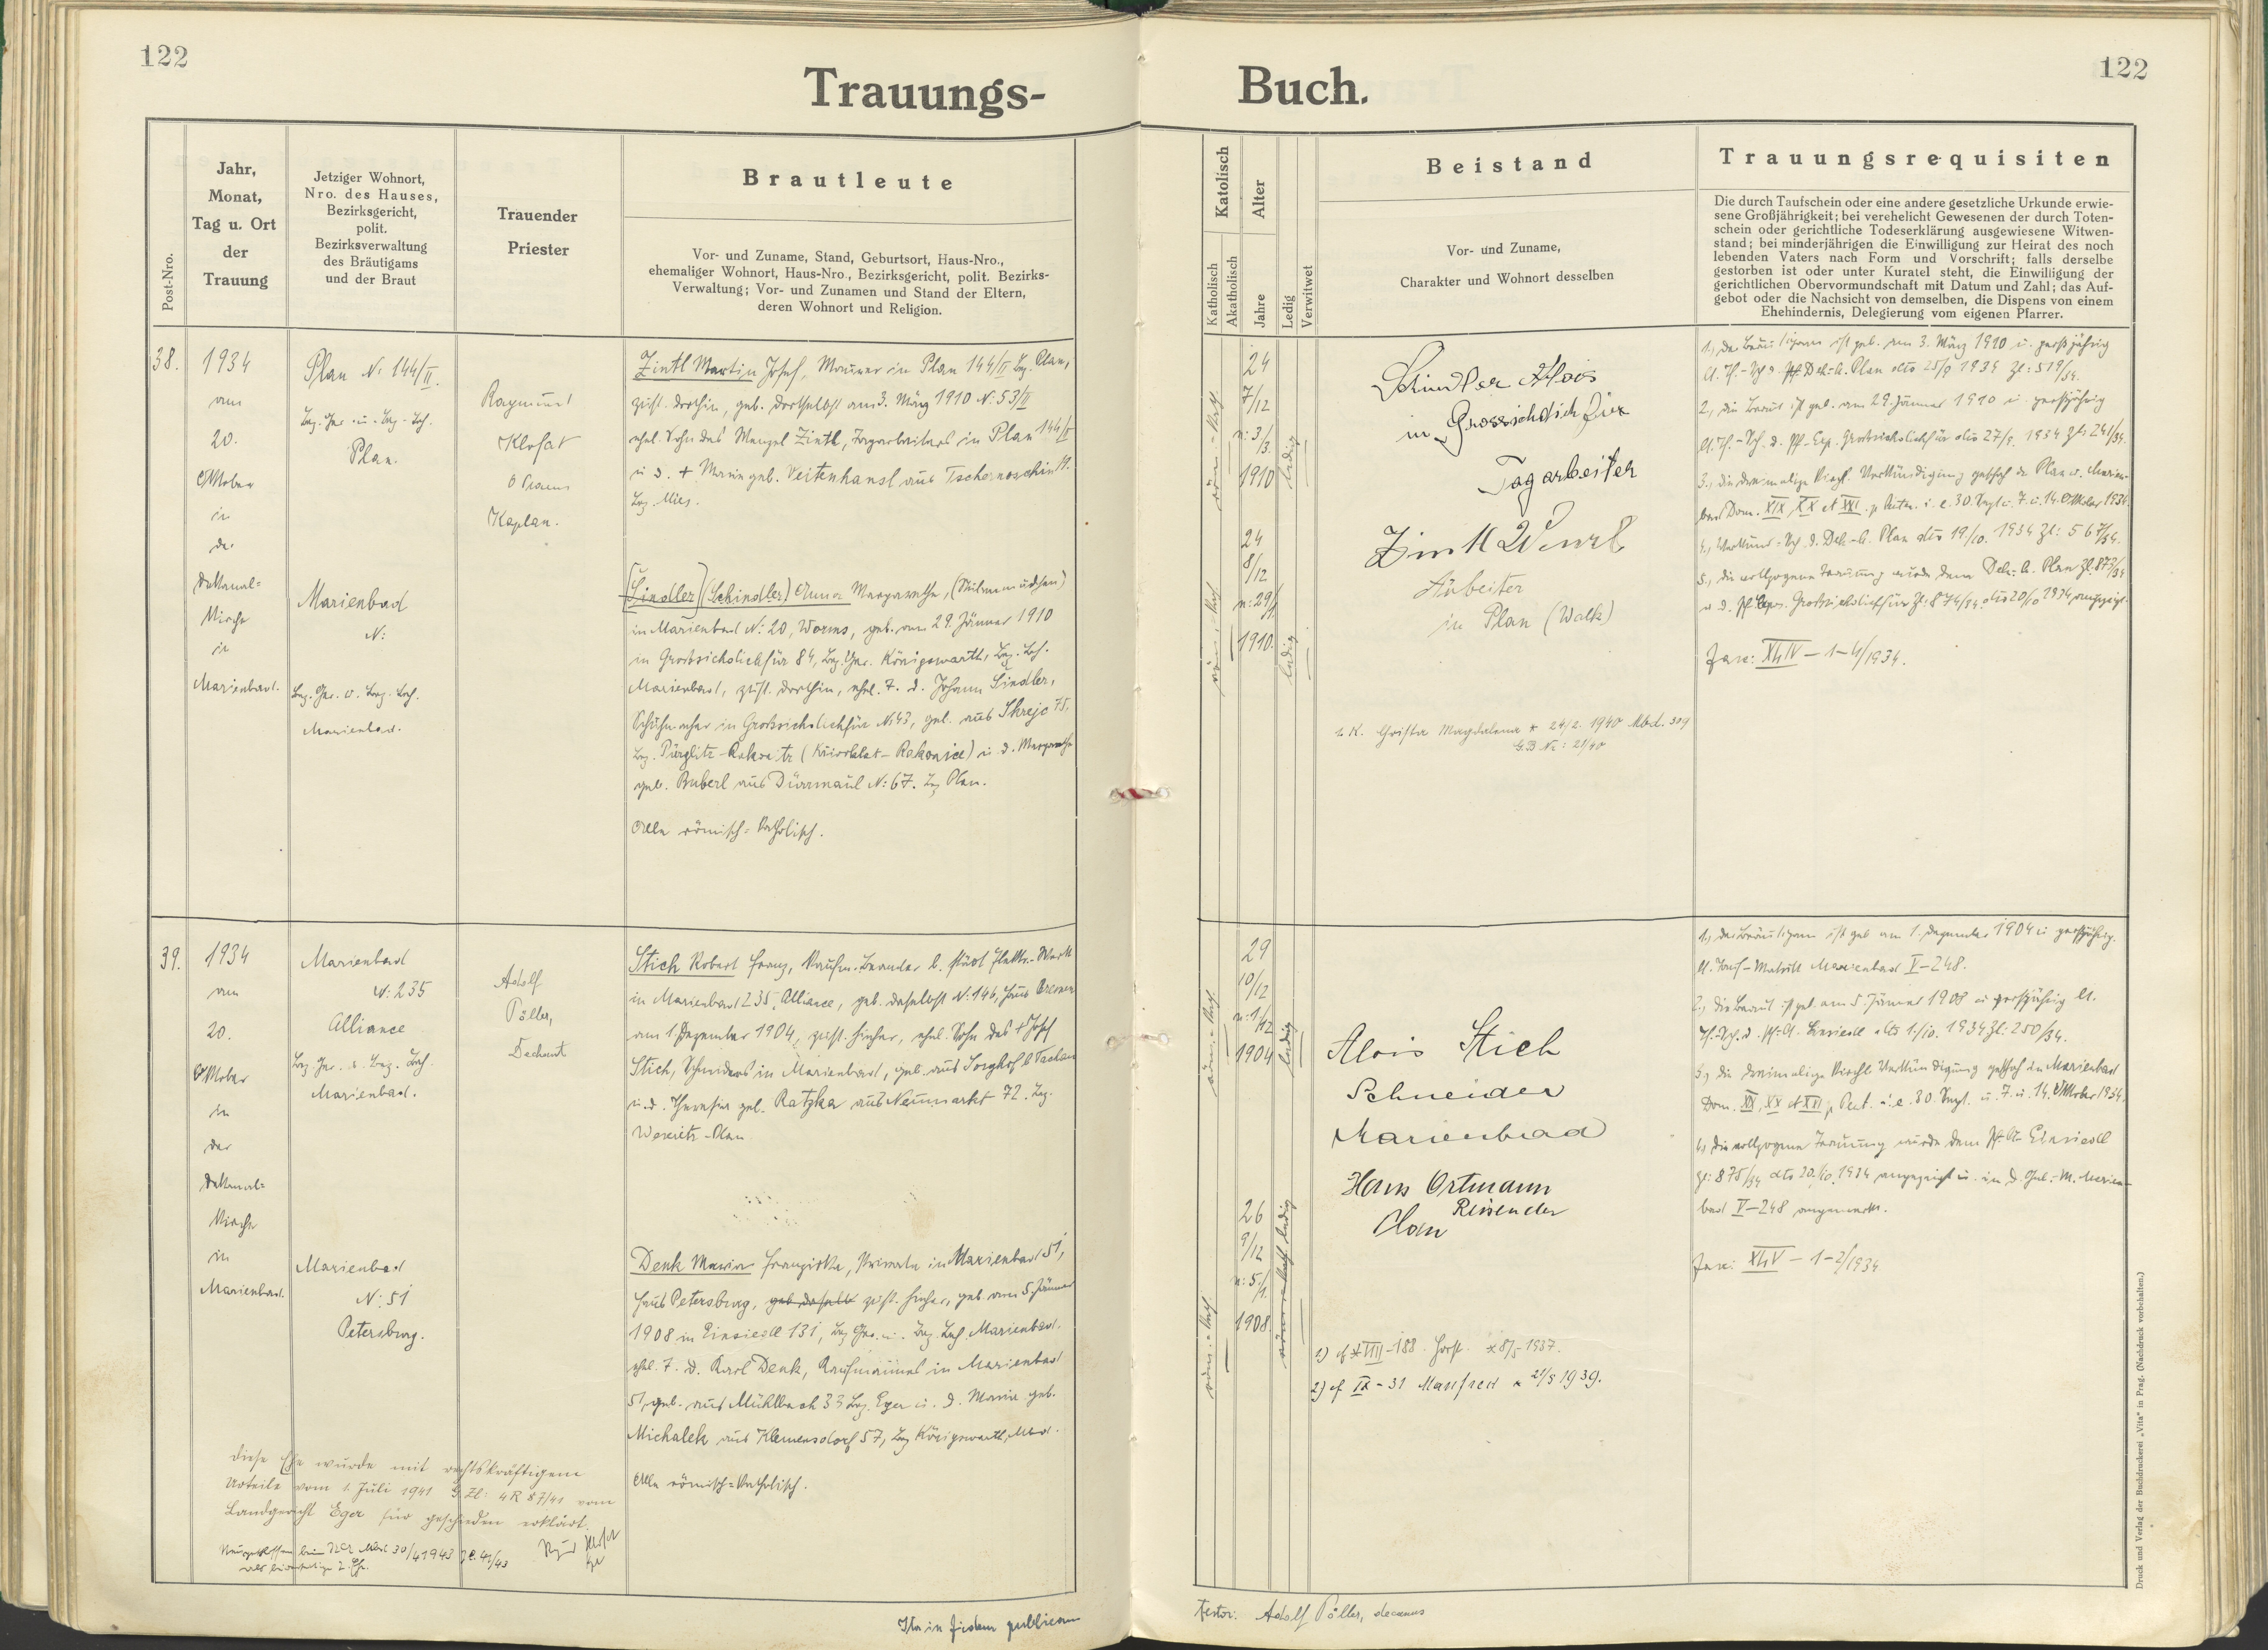 122
122
Trauungs-
Buch.
Post-Nro.
Jahr,
Monat,
Tag u. Ort
der
Trauung
Jetziger Wohnort,
Nro. des Hauses,
Bezirksgericht,
polit.
Bezirksverwaltung
des Bräutigams
und der Braut
Trauender
Priester
Brautleute
Vor- und Zuname, Stand, Geburtsort, Haus-Nro.,
ehemaliger Wohnort, Haus-Nro., Bezirksgericht, polit. Bezirks-
Verwaltung; Vor- und Zunamen und Stand der Eltern,
deren Wohnort und Religion.
Katolisch
Katholisch
Akatholisch
Alter
Jahre
Ledig
Verwitwet
Beistand
Vor- und Zuname,
Charakter und Wohnort desselben
Trauungsrequisiten
Die durch Taufschein oder eine andere gesetzliche Urkunde erwie-
sene Großjährigkeit; bei verehelicht Gewesenen der durch Toten-
schein oder gerichtliche Todeserklärung ausgewiesene Witwen-
stand; bei minderjährigen die Einwilligung zur Heirat des noch
lebenden Vaters nach Form und Vorschrift; falls derselbe
gestorben ist oder unter Kuratel steht, die Einwilligung der
gerichtlichen Obervormundschaft mit Datum und Zahl; das Auf-
gebot oder die Nachsicht von demselben, die Dispens von einem
Ehehindernis, Delegierung vom eigenen Pfarrer.
38.
1934
am
20.
Oktober
in
der
Dekanal-
kirche
in
Marienbad.
Plan N: 144/II.
Bez. Ger. u. Bez. Beh.
Plan.
Marienbad
N:
Bez. Ger. u. Bez. Beh.
Marienbad.
Raymund
Klofat
O Praem
Kaplan.
Zintl Martin Josef, Maurer in Plan 144/II Bez. Plan,
zust. dorthin, geb. dortselbst am 3. März 1910 N: 53/II
ehel. Sohn des Wenzel Zintl, Tagarbeiters in Plan 144/II
u. d. + Marie geb. Veitenhansl aus Tschernoschin 11.
Bez. Mies.
[Šindler] (Schindler) Anna Margarethe, (Stubenmädchen)
in Marienbad N: 20, Worms, geb. am 29. Jänner 1910
in Großsichdichfür 84, Bez. Ger. Königswarth, Bez. Beh.
Marienbad, zust. dorthin, ehel. T. d. Johann Šindler,
Schuhmacher in Großsichdichfür N: 43, geb. aus Skreje 75.
Bez. Pürglitz-Rakonitz (Křivoklat-Rakovnice) u. d. Margarethe
geb. Buberl aus Dürrmaul N: 67. Bez Plan.
Alle römisch-katholisch.
24
7/12
n: 3/3.
1910
röm.-kath.
ledig
24
8/12
n: 29/1
1910.
röm.-kath.
ledig
Schindler Alois
in Grossichdichfür
Tagarbeiter
Zintl Wenzl
Arbeiter
in Plan (Walk)
1. K. Christa Magdalena * 24/2. 1940 Mbd. 309
G.B Nr: 21/40
1., der Bräutigam ist geb. am 3. März 1910 u. großjährig
lt. Tf.-Sch d. Pf. Dek-A. Plan dto 25/9 1934 Zl: 519/34.
2., die Braut ist geb. am 29. Jänner 1910 u. großjährig
lt. Tf.-Sch. d. Pf-Exp. Großsichdichfür dto 27/9. 1934 Zl: 241/34.
3., die dreimalige kirchl. Verkündigung geschah in Plan u. Marien-
bad Dom. XIX, XX et XXI. p Pent. i. e. 30 Sept u. 7. u. 14. Oktober 1934.
4., Verkünd-Sch. d. Dek-A. Plan dto 19/10. 1934 Zl: 567/34.
5., die vollzogene Trauung wurde dem Dek-A. Plan Zl: 873/34
u d. Pf Expos. Großsichdichfür Zl: 874/34. dto 20/10 1934 angezeigt.
Fasz: XLIV - 1-4/1934.
39.
1934
am
20.
Oktober
in
der
Dekanal-
kirche
in
Marienbad.
Marienbad
N: 235
Alliance
Bez Ger. u. Bez. Beh.
Marienbad.
Marienbad
N: 51
Petersburg.
Adolf
Pöller,
Dechant
Stich Robert Franz, kaufm. Beamter b. städt Elektr.-Werk
in Marienbad 235, Alliance, geb. daselbst N: 146, Haus Bremen
am 1. Dezember 1904, zust. hieher, ehel. Sohn des + Josef
Stich, Schneiders in Marienbad, geb. aus Sorghof b Tachau
u. d. Theresia geb. Ratzka aus Neumarkt 72. Bez.
Weseritz-Plan
Denk Maria Franziska, Private in Marienbad 51,
Haus Petersburg, geb daselb zust. hieher, geb. am 5. Jänner
1908 in Einsiedl 131, Bez Ger. u. Bez. Beh. Marienbad.
ehel. T. d. Karl Denk, Kaufmannes in Marienbad
51, geb. aus Mühlbach 33 Bez. Eger u. d. Marie geb.
Michalek aus Klemensdorf 57, Bez Königswarth, Mbd.
Alle römisch-katholisch.
29
10/12
n: 1/12
1904
röm.-kath.
ledig
26
9/12
n: 5./1.
1908.
röm.-kath.
röm.-kath ledig
Alois Stich
Schneider
Marienbad
Hans Ortmann
Reisender
Plan
1) cf * VIII-188 Horst * 8/5 1937.
2) cf IX-31 Manfred * 21/5 1939.
1., der Bräutigam ist geb am 1. Dezember 1904 u großjährig.
lt. Tauf-Matrik Marienbad V-248.
2., die Braut ist geb. am 5. Jänner 1908 u großjährig lt.
Tf.-Sch. d. Pf-A. Einsiedl dto 1./10. 1934 Zl: 250/34.
3., die dreimalige kirchl. Verkündigung geschah in Marienbad
Dom. XIX, XX et XXI p. Pent. i. e. 30. Sept. u. 7. u. 14. Oktober 1934.
4., die vollzogene Trauung wurde dem Pf-A. Einsiedl
Zl: 875/34 dto 20./10. 1934 angezeigt u. in d. Geb.-M. Marien-
bad V-248 angemerkt.
Fasz: XLV - 1-2/1934
diese Ehe wurde mit rechtskräftigem
Urteile vom 1. Juli 1941 G Zl: 4R 87/41 vom
Landgericht Eger für geschieden erklärt.
Ita in fidem publicam
testor: Adolf Pöller, decanus
Druck und Verlag der Buchdruckerei „Vita“ in Prag. (Nachdruck vorbehalten.)